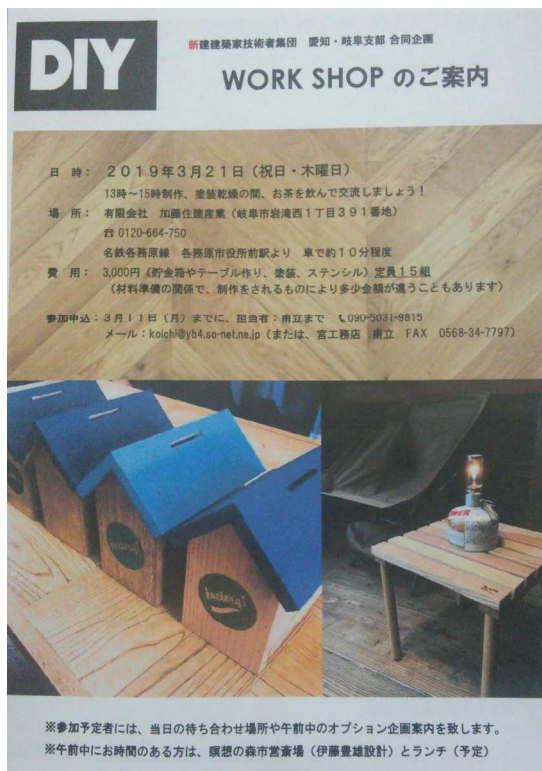 DIY
新建建築家技術者集団 愛知・岐阜支部 合同企画
WORK SHOP のご案内
日 時： ２０１９年３月２１日（祝日・木曜日）
13時～15時制作、塗装乾燥の間、お茶を飲んで交流しましょう！
場 所： 有限会社 加藤住建産業（岐阜市岩滝西１丁目３９１番地）
☎ 0120-664-750
名鉄各務原線 各務原市役所前駅より 車で約１０分程度
費 用： 3,000円（貯金箱やテーブル作り、塗装、ステンシル）定員１５組
（材料準備の関係で、制作をされるものにより多少金額が違うこともあります）
参加申込：３月１１日（月）までに、担当者：甫立まで 📞090-5031-9815
メール：koichi@yb4.so-net.ne.jp（または、宮工務店 甫立 FAX 0568-34-7797）
factory!
※参加予定者には、当日の待ち合わせ場所や午前中のオプション企画案内を致します。
※午前中にお時間のある方は、瞑想の森市営斎場（伊藤豊雄設計）とランチ（予定）